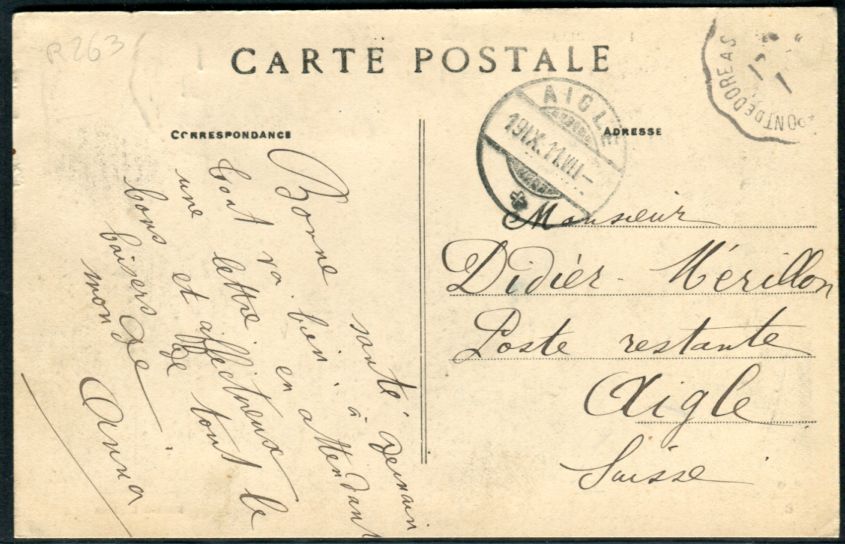 R263
CARTE POSTALE
CORRESPONDANCE
ADRESSE
AIGLE
19.IX.11.VII-
PONTDEDOREAS
Bonne santé
tout va bien. à demain
une lettre. en attendant
bons et affectueux
baisers de tout le
monde
Anna
Monsieur
Didier-Mérillon
Poste restante
Aigle
Suisse